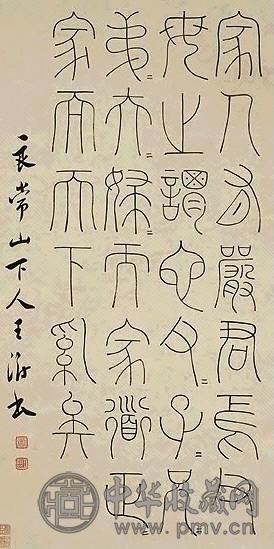 家人有嚴君焉父
母之謂也父〻子〻兄〻
弟〻夫〻婦〻而家道正〻
家而天下矣
良常山下人王澍書
中华收藏网
www.pmv.cn